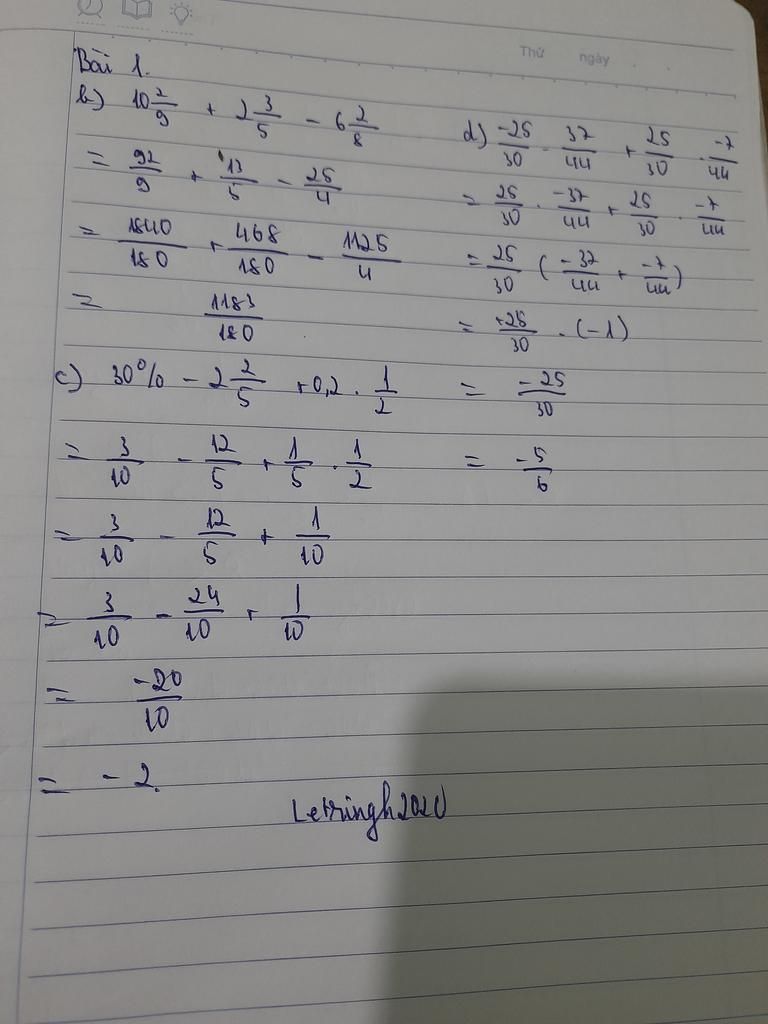 Thứ ngày
Bài 1.
b) 10 2/9 + 2 3/5 - 6 2/8
= 92/9 + 13/5 - 25/4
= 1840/180 + 468/180 - 1125/4
= 1183/180
c) 30% - 2 2/5 + 0,2 . 1/2
= 3/10 - 12/5 + 1/5 . 1/2
= 3/10 - 12/5 + 1/10
= 3/10 - 24/10 + 1/10
= -20/10
= -2.
d) -25/30 . 37/44 + 25/30 . -7/44
= 25/30 . -37/44 + 25/30 . -7/44
= 25/30 (-37/44 + -7/44)
= 25/30 . (-1)
= -25/30
= -5/6
Letringh2020